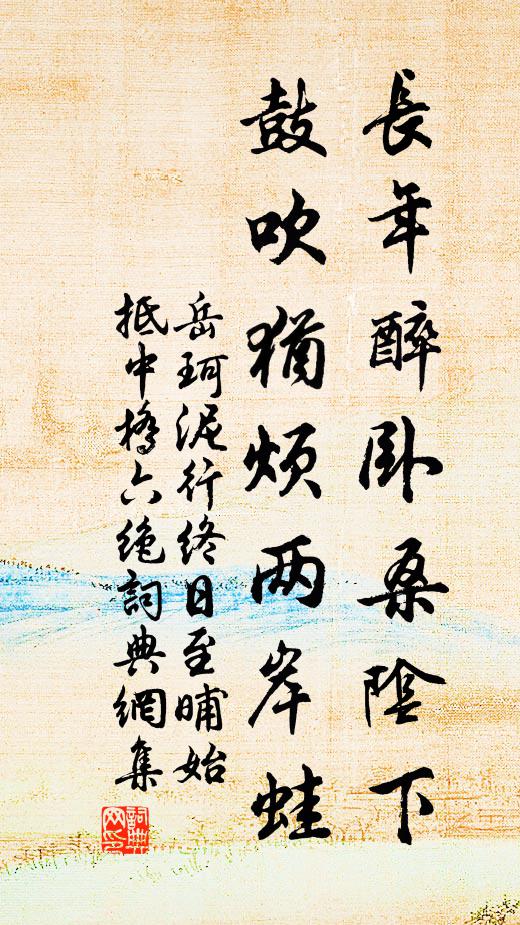 長年醉卧桑陰下
鼓吹猶煩两岸蛙
岳珂泥行終日至晡始
抵中橋六绝詞典網集
詞典
网印